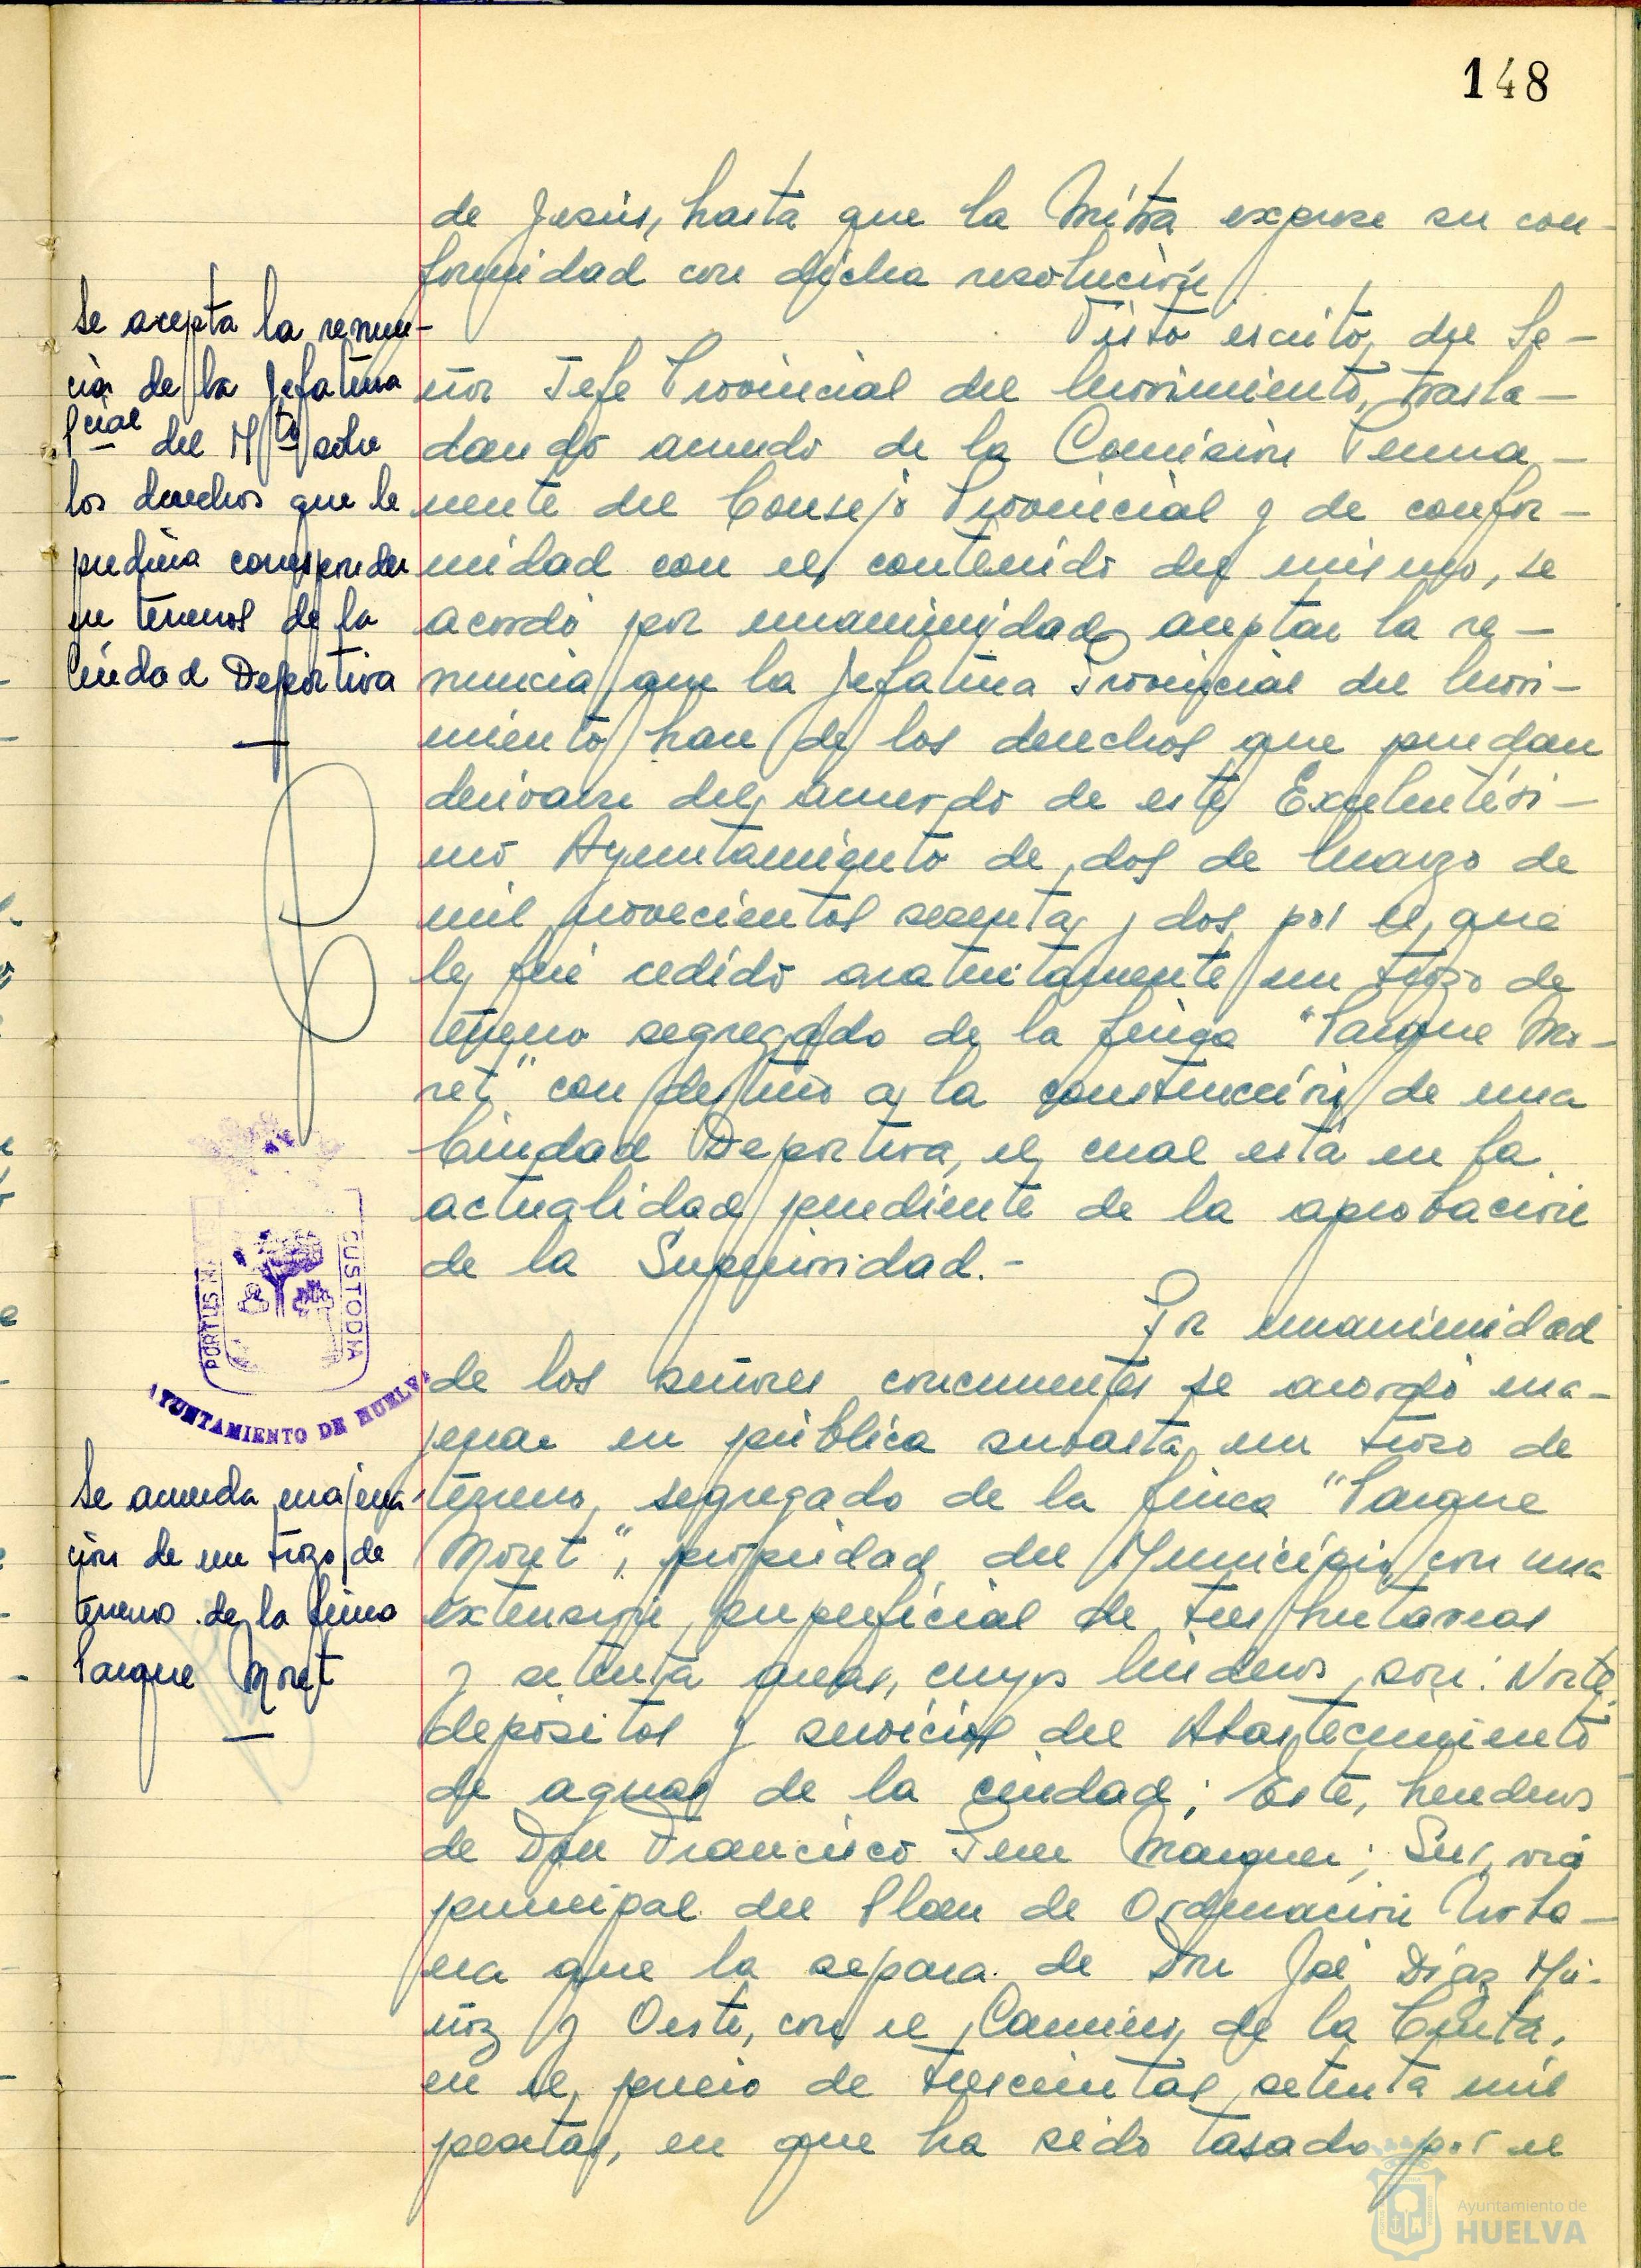 148
de Jesús, hasta que la Mitra exprese su con-
formidad con dicha resolución
Se acepta la renun-
cia de la Jefatura
Pcial del Mto sobre
los derechos que le
pudiera corresponder
en terrenos de la
Ciudad Deportiva
Visto escrito del Se-
ñor Jefe Provincial del Movimiento, trasla-
dando acuerdo de la Comisión Perma-
nente del Consejo Provincial y de confor-
midad con el contenido del mismo, se
acordó por unanimidad aceptar la re-
nuncia que la Jefatura Provincial del Movi-
miento hace de los derechos que puedan
derivarse del acuerdo de este Excelentísi-
mo Ayuntamiento de dos de Marzo de
mil novecientos sesenta y dos por el que
le fué cedido gratuitamente un trozo de
terreno segregado de la finca "Parque Mo-
ret" con destino a la construcción de una
Ciudad Deportiva, el cual está en la
actualidad pendiente de la aprobación
de la Superioridad.-
PORTUS MARIS
CUSTODIA
AYUNTAMIENTO DE HUELVA
Se acuerda enajena-
ción de un trozo de
terreno de la finca
Parque Moret
Por unanimidad
de los señores concurrentes se acordó ena-
jenar en pública subasta un trozo de
terreno, segregado de la finca "Parque
Moret", propiedad del Municipio, con una
extensión superficial de tres hectáreas
y setenta areas, cuyos linderos son: Norte,
depósitos y servicios del Abastecimiento
de aguas de la ciudad; Este, herederos
de Don Francisco Marquez; Sur, vía
principal del Plan de Ordenación Urba-
na que la separa de Don José Díaz Mu-
ñoz y Oeste, con el Camino de la Cinta,
en el precio de trescientas setenta mil
pesetas, en que ha sido tasado por el
Ayuntamiento de
HUELVA